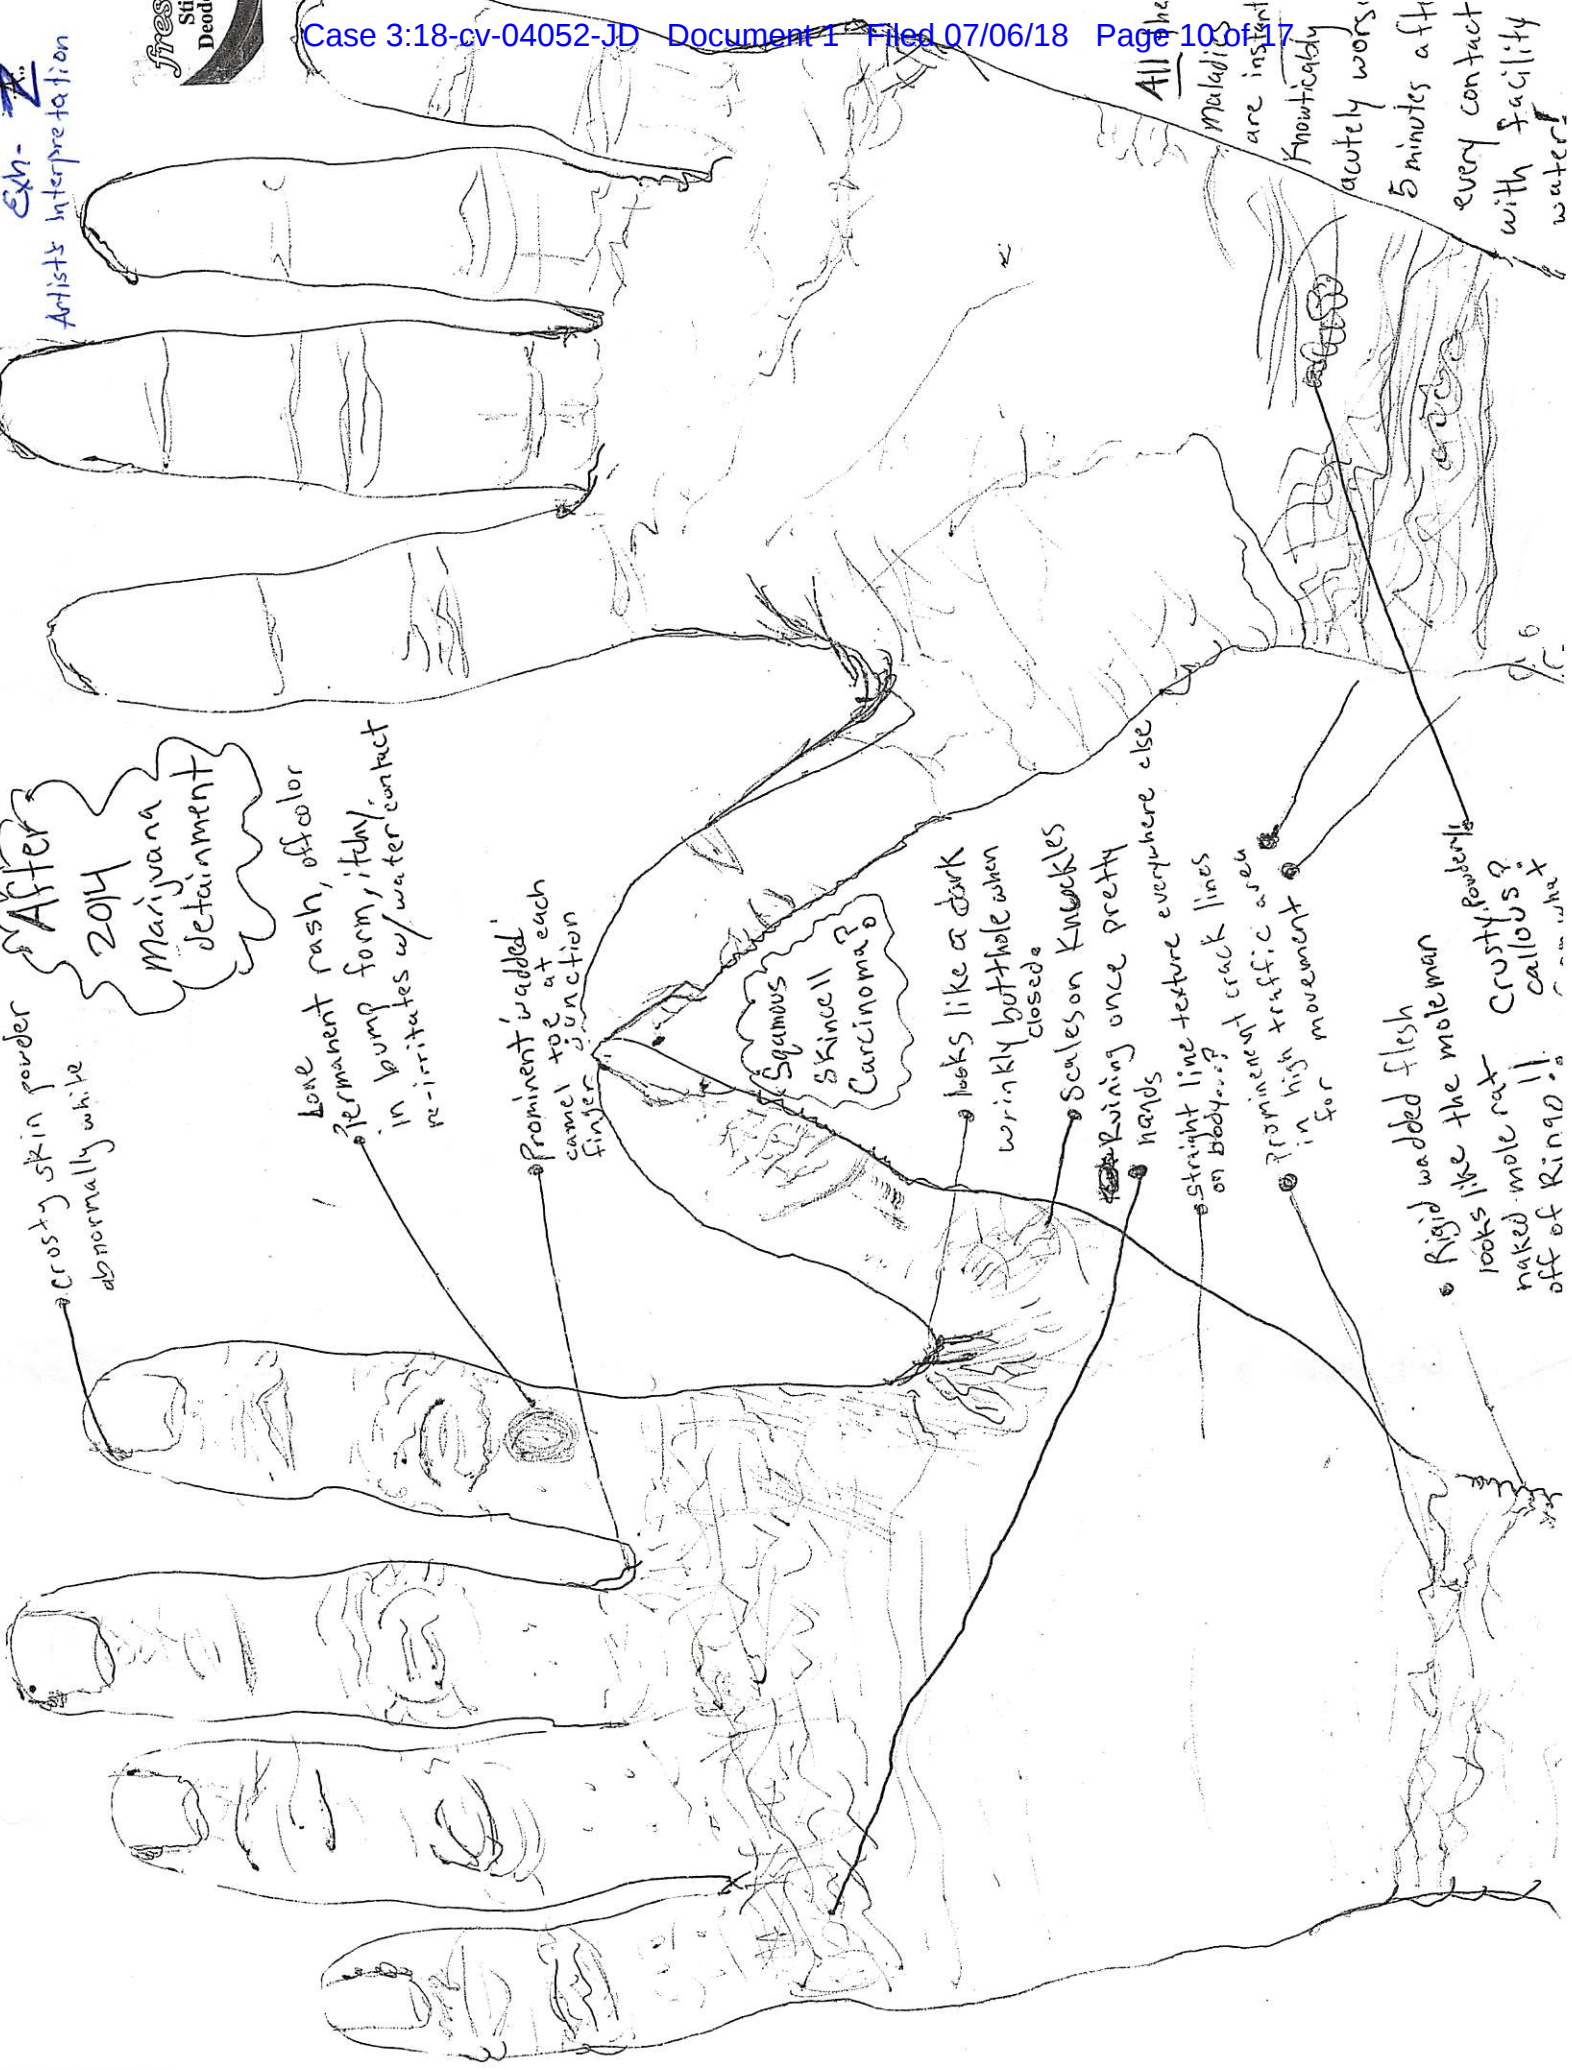 Case 3:18-cv-04052-JD Document 1 Filed 07/06/18 Page 10 of 17
Exh-
Artists Interpretation
fres
Sti
Deod
After
2014
Marijvana
detainment
crosty skin powder
abnormally white
Lone
Permanent rash, off color
in bump form, itchy,
re-irritates w/water contact
Prominent 'wadded'
camel toe at each
finger junction
Sqamous
Skincell
Carcinoma?
looks like a dark
wrinkly butthole when
closed.
Scales on Knuckles
Ruining once pretty
hands
straight line texture everywhere else
on body...?
prominent crack lines
in high traffic area
for movement
Rigid wadded flesh
looks like the mole man
looks like
naked mole rat
off of Ringo!!
Crusty, Powdery
callous?
All the
maladies
are instant
Knowticably
acutely worse
5 minutes afte
every contact
with facility
water!